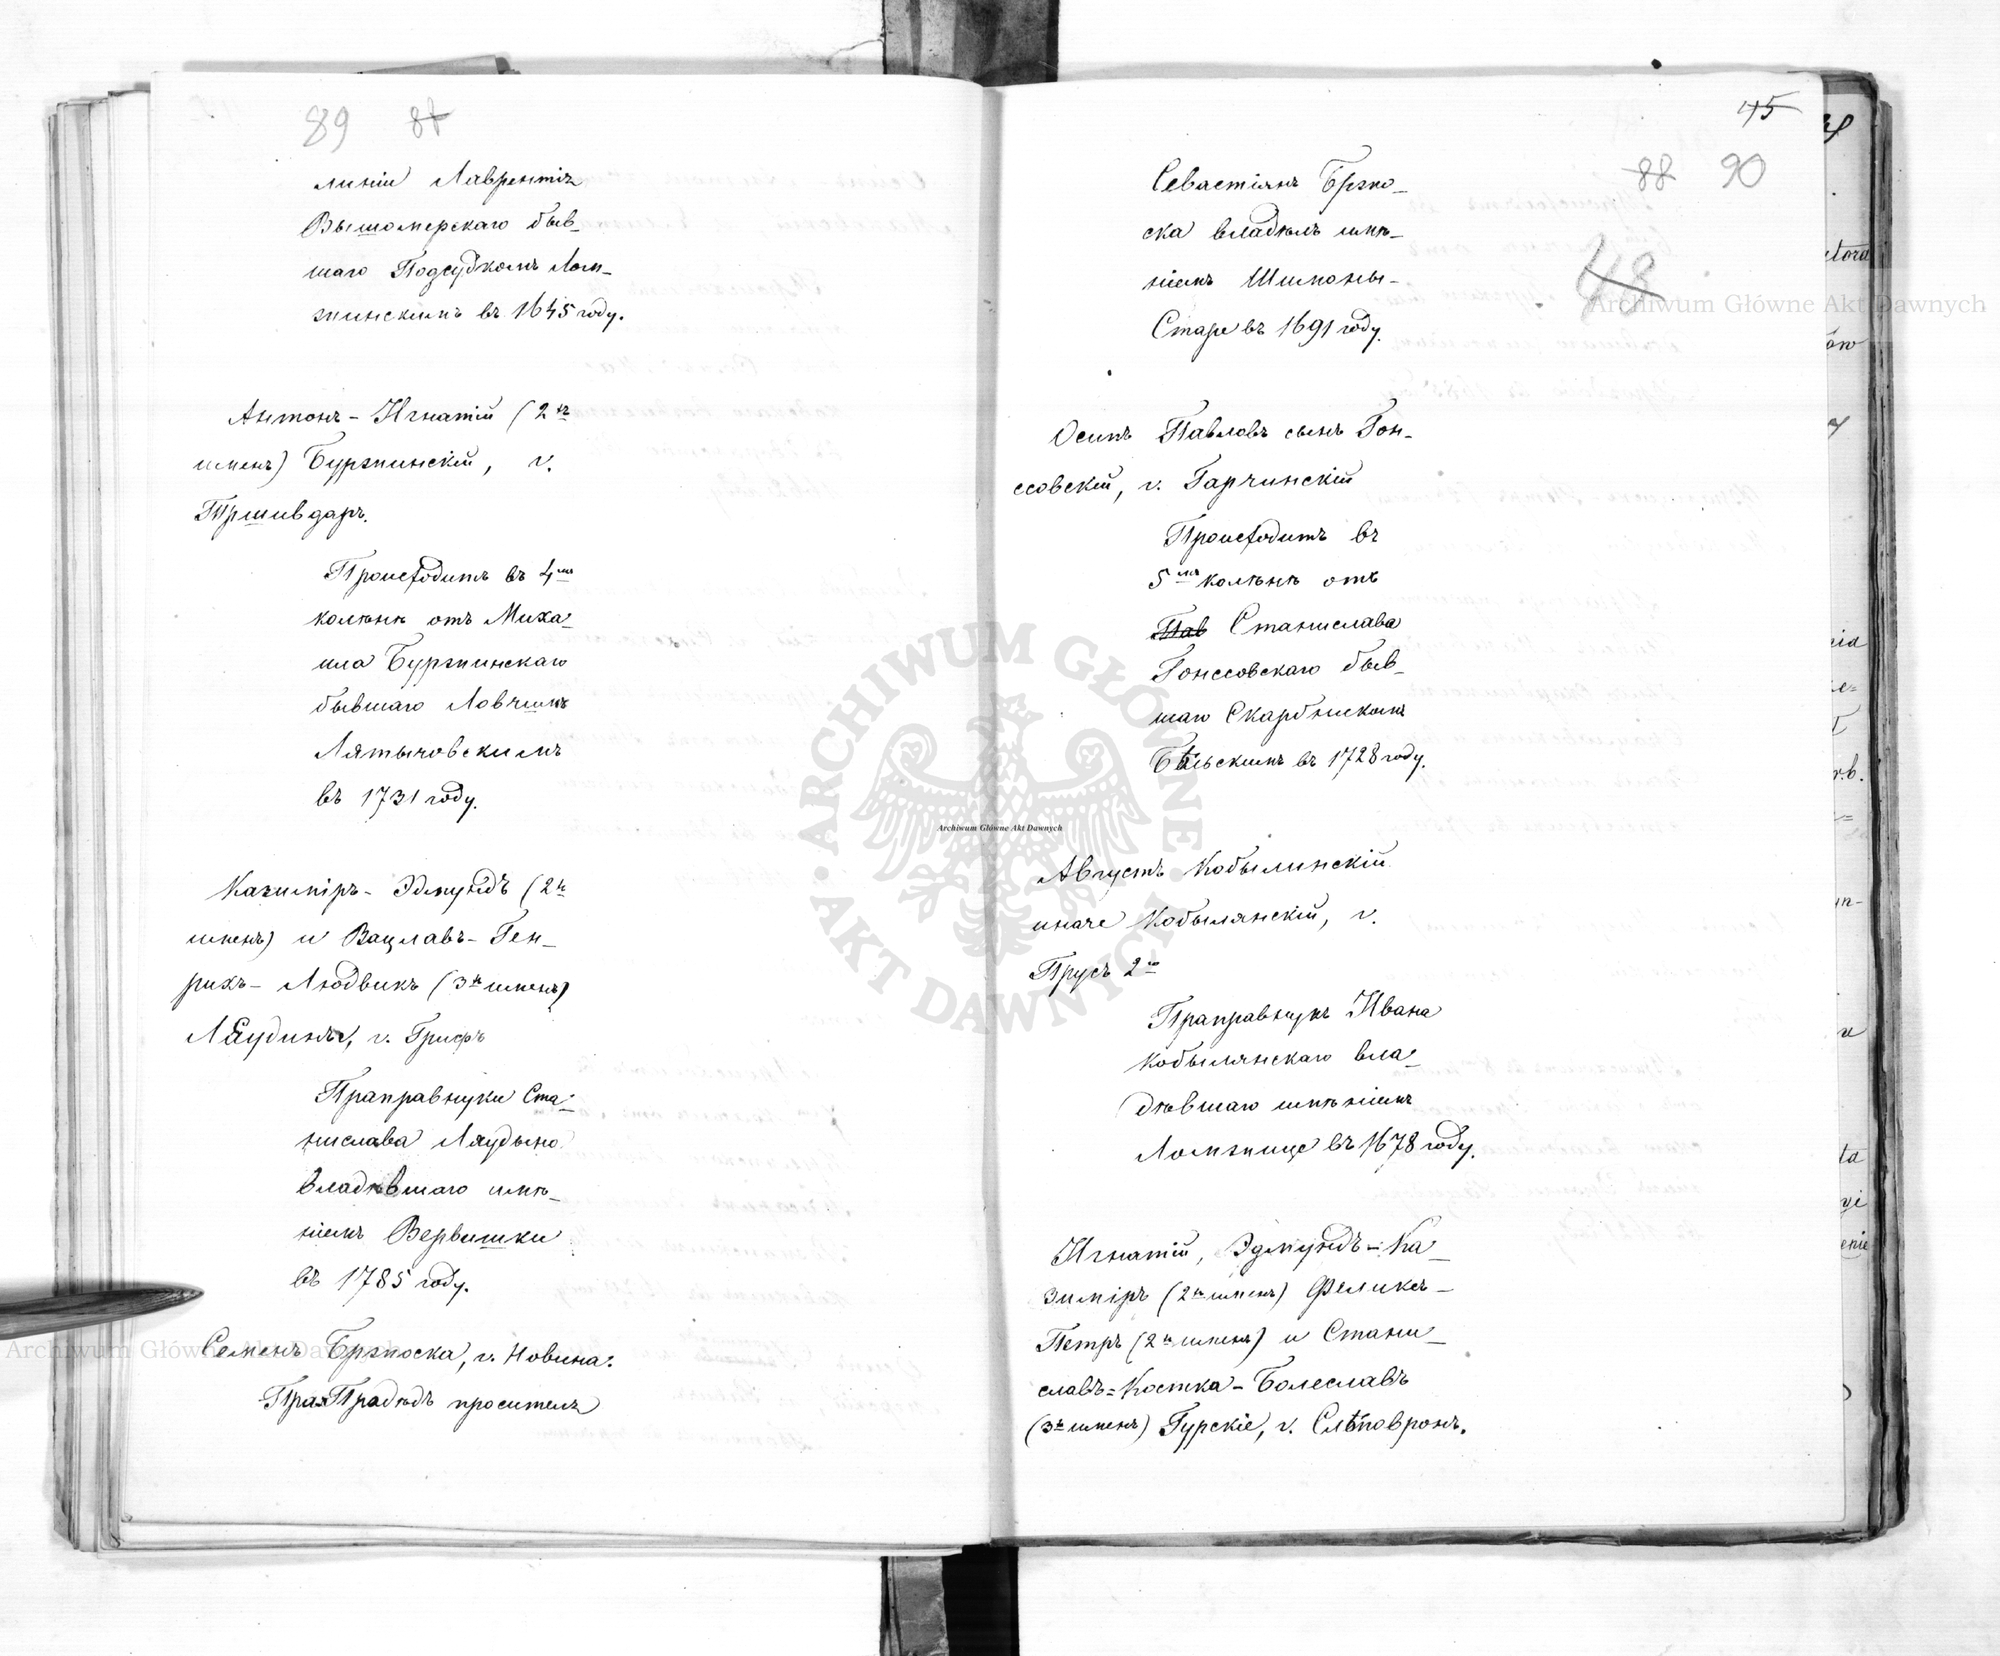 89 88
линіи Лаврентія
Вышомирскаго быв-
шаго Подсудкомъ Лом-
жинскимъ въ 1645 году.
Антонъ-Игнатій (2хъ
именъ) Буржинскій, г.
Тршивдаръ.
Происходитъ въ 4мъ
колѣнѣ отъ Миха-
ила Буржинскаго
бывшаго Ловчимъ
Лятычовскимъ
въ 1731 году.
Казиміръ-Эдмундъ (2хъ
именъ) и Вацлавъ-Ген-
рихъ-Людвикъ (3хъ именъ)
Ляудины, г. Грифъ
Праправнуки Ста-
нислава Ляудыно
владѣвшаго имѣ-
ніемъ Вервишки
въ 1785 году.
Семенъ Бржоска, г. Новина.
Прадѣдъ просителя
45
88 90
48
Севастіянъ Бржо-
ска владѣлъ имѣ-
ніемъ Шипоны-
Старе въ 1691 году.
Осипъ Павловъ сынъ Гон-
ссовскій, г. Гарчинскій
Происходитъ въ
5мъ колѣнѣ отъ
Пав Станислава
Гонссовскаго быв-
шаго Скарбникомъ
Бѣльскимъ въ 1728 году.
Августъ Кобылинскій
иначе Кобылянскій, г.
Прусъ 2го
Праправнукъ Ивана
Кобылянскаго вла-
дѣвшаго имѣніемъ
Ломжице въ 1678 году.
Игнатій, Эдмундъ-Ка-
зиміръ (2хъ именъ) Феликсъ-
Петръ (2хъ именъ) и Стани-
славъ-Костка-Болеславъ
(3хъ именъ) Гурскіе, г. Слѣповронъ.
Archiwum Główne Akt Dawnych
Archiwum Główne Akt Dawnych
Archiwum Główne Akt Dawnych
ARCHIWUM GŁÓWNE AKT DAWNYCH